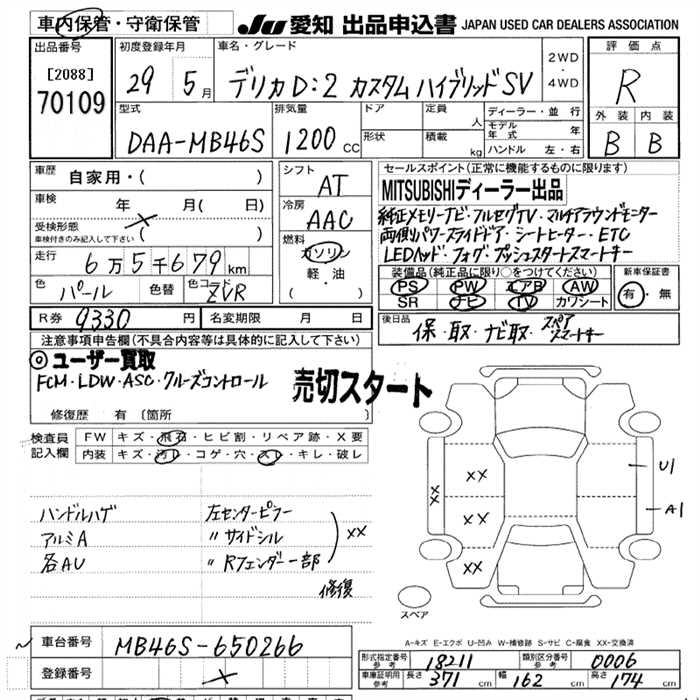 車内保管・守衛保管
JU 愛知 出品申込書 JAPAN USED CAR DEALERS ASSOCIATION
出品番号
[2088]
70109
初度登録年月
29年 5月
車名・グレード
デリカD:2 カスタム ハイブリッドSV
2WD
・
4WD
評価点
R
外装 内装
B B
型式
DAA-MB46S
排気量
1200 CC
ドア
形状
定員 人
積載 kg
ディーラー・並行
モデル年式 年
ハンドル 左・右
車歴
自家用・( )
車検 年 月( )
受検形態
車検付きのみ記入して下さい( )
走行
6万5千679 km
色
パール
色替
色コード
ZVR
シフト
AT
冷房
AAC
燃料
ガソリン
軽・油
( )
セールスポイント(正常に機能するものに限ります)
MITSUBISHIディーラー出品
純正メモリーナビ・フルセグTV・マルチアラウンドモニター
両側パワースライドドア・シートヒーター・ETC
LEDヘッド・フォグ・プッシュスタートスマートキー
装備品(純正品に限り○をつけてください)
PS PW エアB AW
SR ナビ TV カワシート
新車保証書
有・無
R券 9330 円
名変期限 月 日
後日品
保・取・ナビ取・スペアスマートキー
注意事項申告欄(不具合内容等は具体的に記入して下さい)
◎ ユーザー買取
FCM・LDW・ASC・クルーズコントロール
売切スタート
修復歴 有(箇所
検査員記入欄
FW キズ・飛石・ヒビ割・リペア跡・X要
内装 キズ・汚レ・コゲ・穴・スレ・キレ・破レ
ハンドルハゲ
アルミA
各AU
左センターピラー
〃 サイドシル
〃 Rフェンダー一部
XX
修復
XX
XX
XX
XX
U1
A1
スペア
A-キズ E-エクボ U-凹み W-補修跡 S-サビ C-腐食 XX-交換済
車台番号 MB46S-650266
登録番号
形式指定番号 参考 18211
類別区分番号 参考 0006
車庫証明用 参考 長さ 371 cm 幅 162 cm 高さ 174 cm